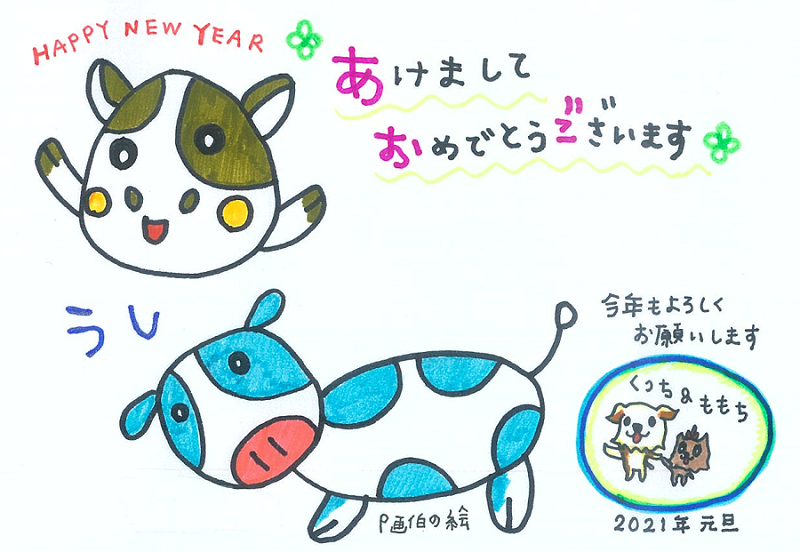 HAPPY NEW YEAR
あけまして
おめでとうございます
うし
今年もよろしく
お願いします
くっち&ももち
P画伯の絵
2021年 元旦